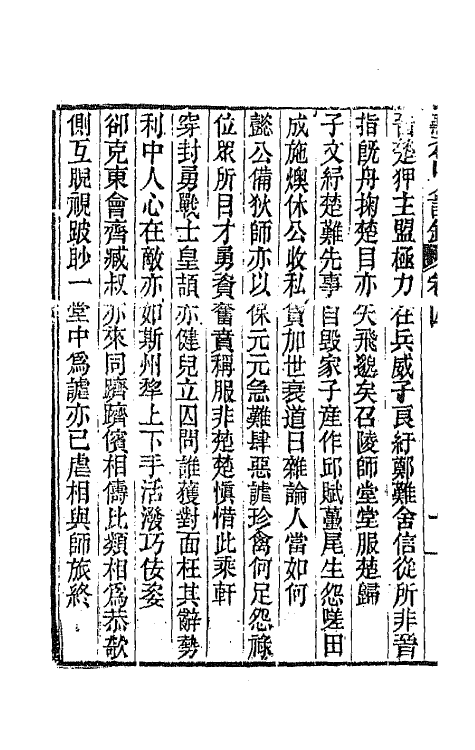 晉楚狎主盟極力在兵威子良紓鄭難舍信從所非晉
指旣舟掬楚目亦矢飛䚈矣召陵師堂堂服楚歸
子文紓楚難先事自毀家子産作邱賦蠆尾生怨嗟田
成施燠休公收私貸加世衰道日雜論人當如何
懿公備狄師亦以保元元急難肆惡謔珍禽何足怨祿
位眾所目才勇資奮賁稱服非楚楚愼惜此乘軒
穿封勇戰士皇頡亦健兒立囚問誰獲對面枉其辭勢
利中人心在敵亦如斯州犂上下手活潑巧伎委
卻克東會齊臧叔亦來同躋躋儐相儔比類相爲恭欹
側互睨視跛眇一堂中爲謔亦已虐相與師旅終